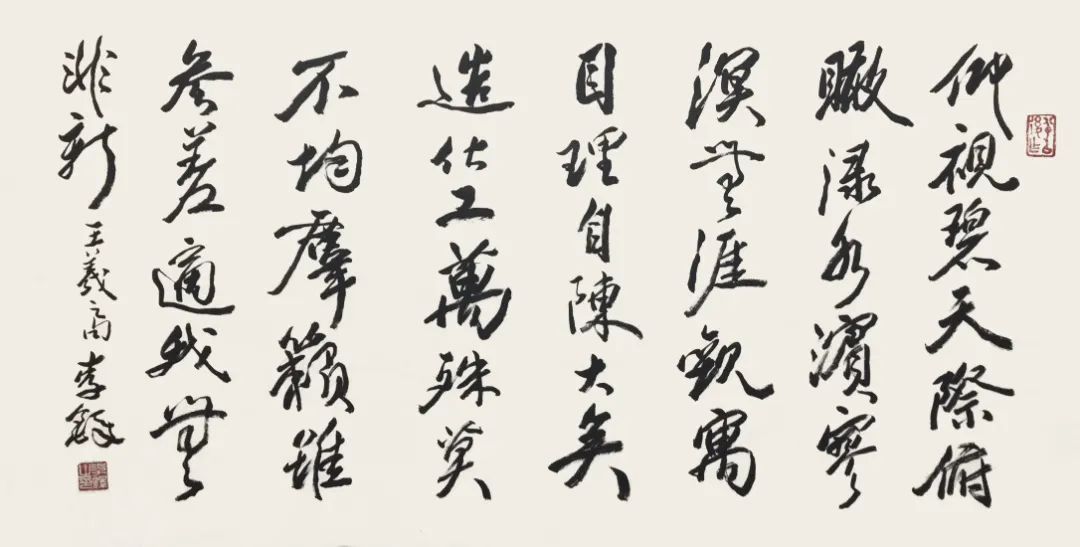 仰視碧天際俯
瞰淥水濱寥
溟無涯觀寓
目理自陳大矣
造化工萬殊莫
不均羣籟雖
參差適我無
非新 王羲之 李鐸